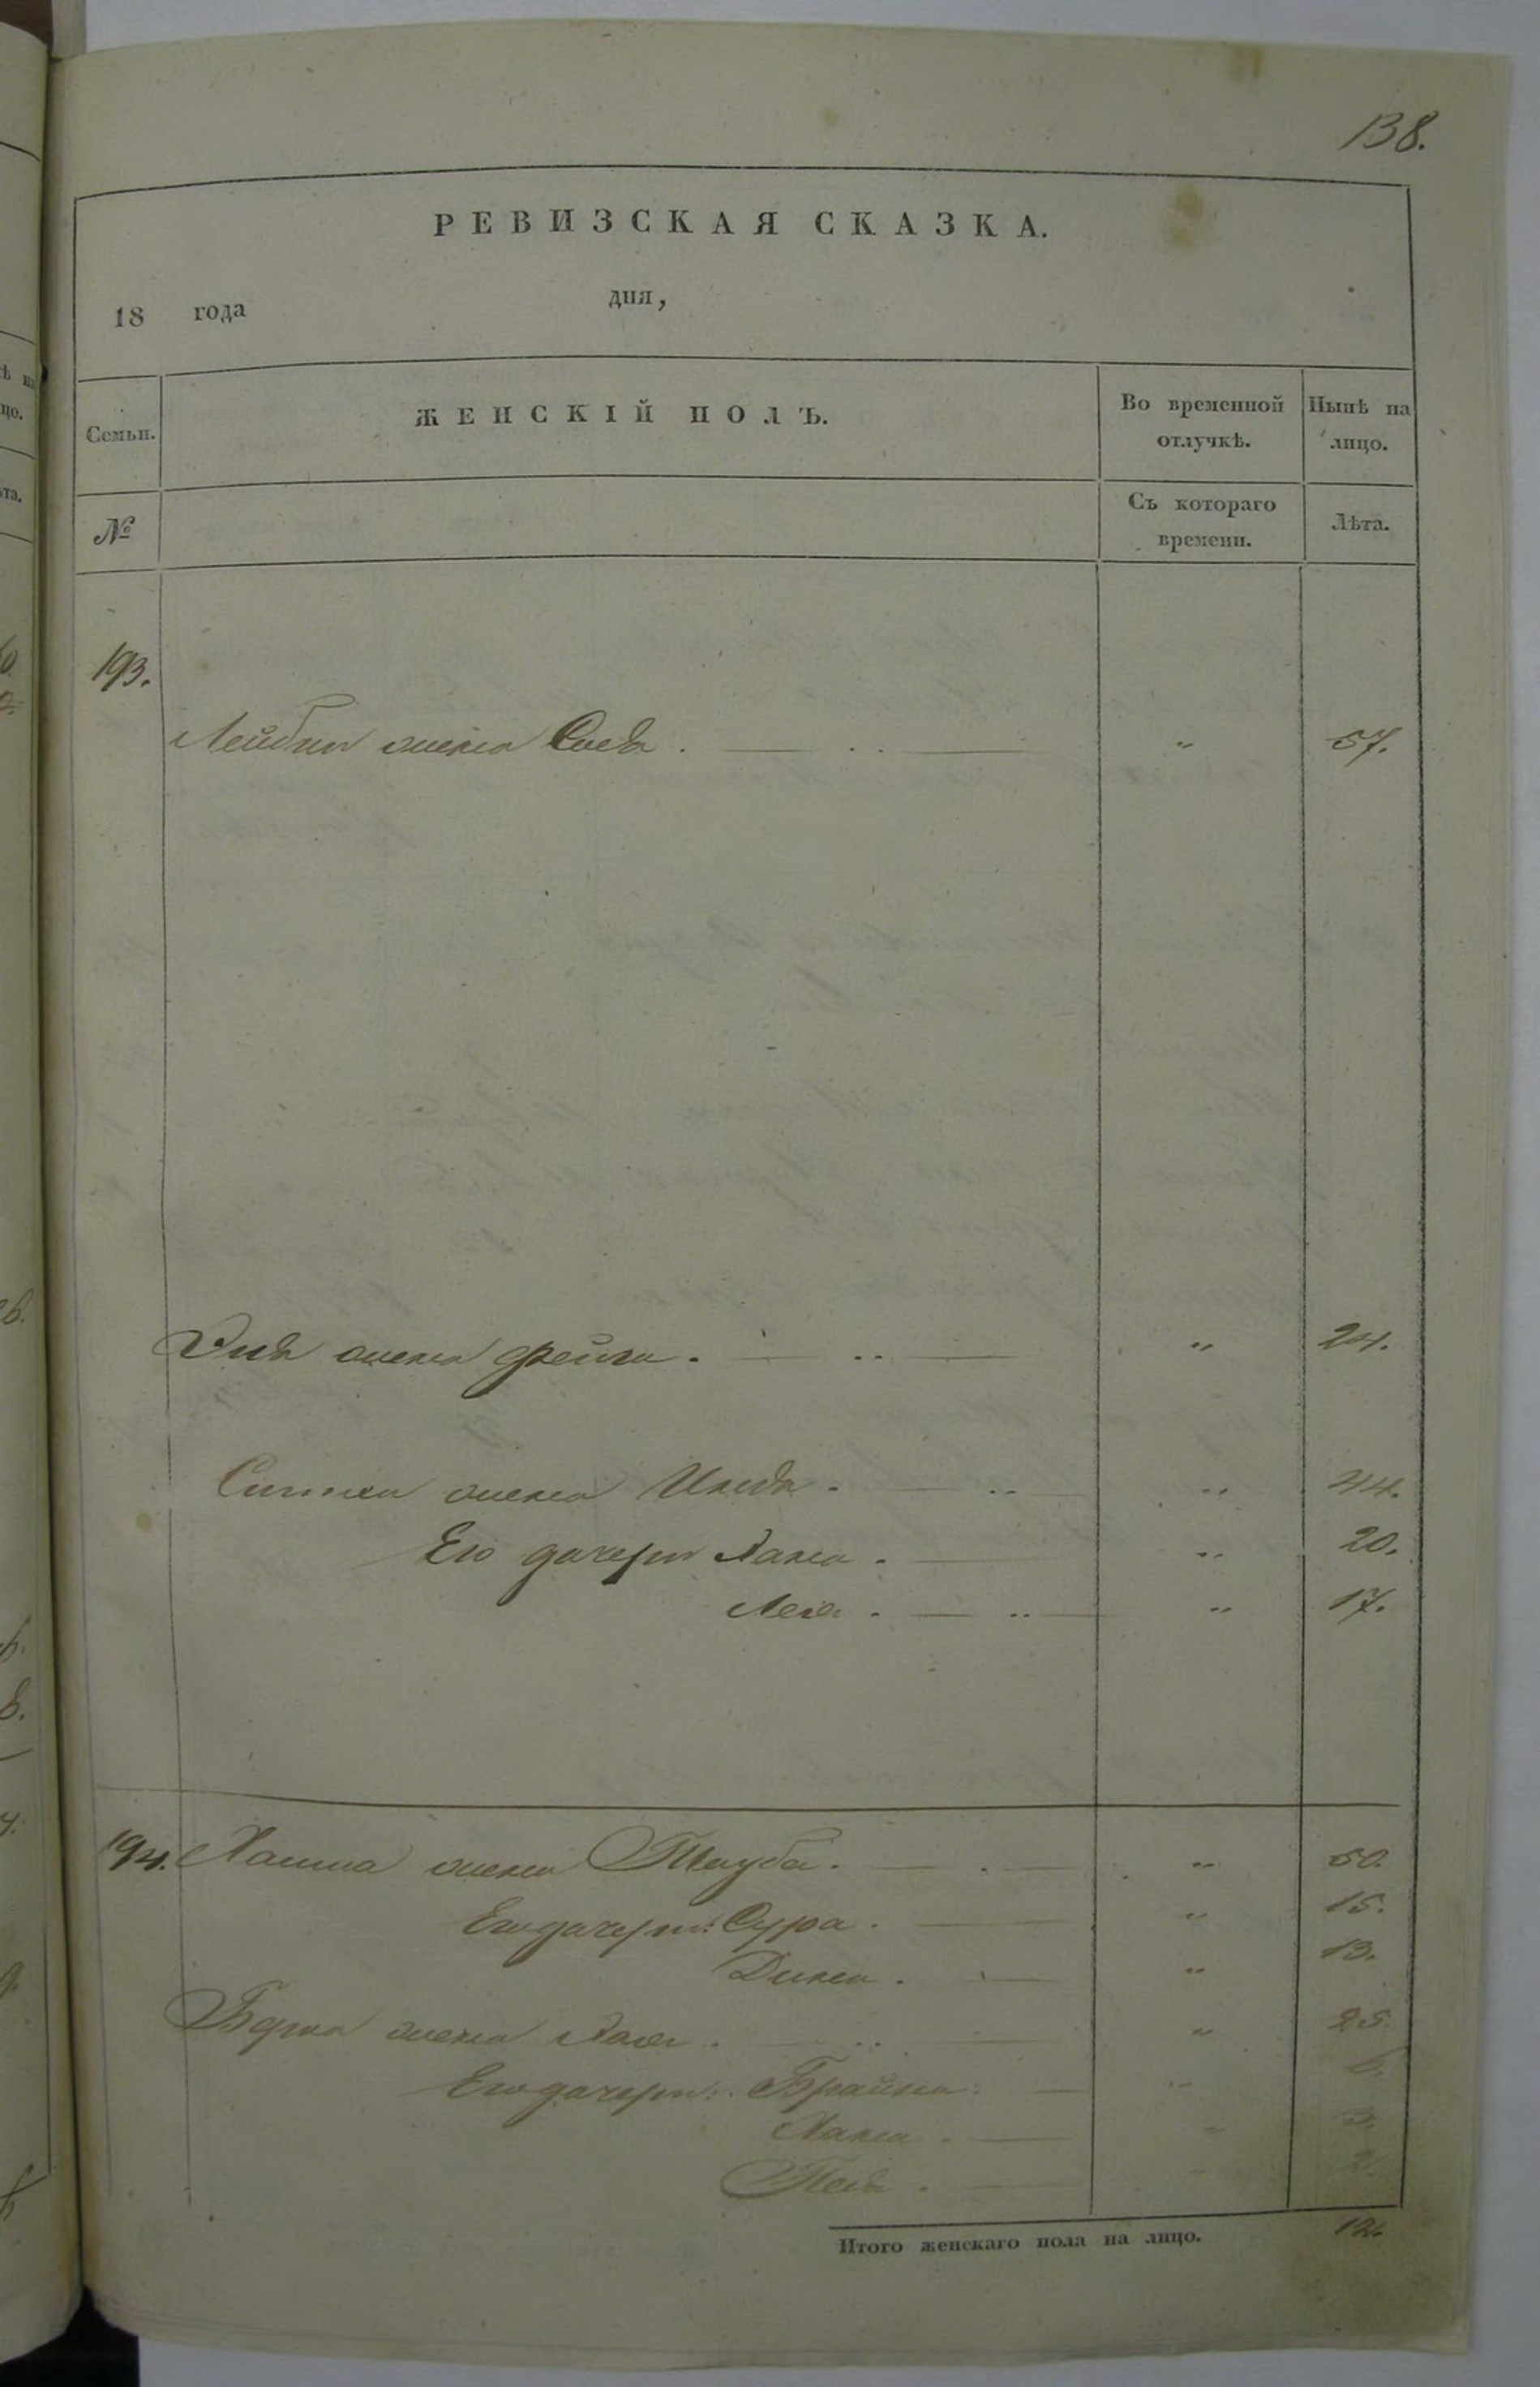 138.
РЕВИЗСКАЯ СКАЗКА.
18 года дня,
Семьи. ЖЕНСКІЙ ПОЛЪ. Во временной отлучкѣ. Нынѣ на лицо.
№ Съ котораго времени. Лѣта.
193.
Лейбы жена Сося . " 57.
жена Фейга . " 24.
жена . " 44.
Его дочери Хана . " 20.
Лея . " 17.
194. жена Тауба . " 50.
Его дочери: Сура . " 15.
Дина . " 13.
жена Хая . " 25.
Его дочери: Брайна . " 6.
Хана . " 3.
Песя . " 2.
Итого женскаго пола на лицо. 12.